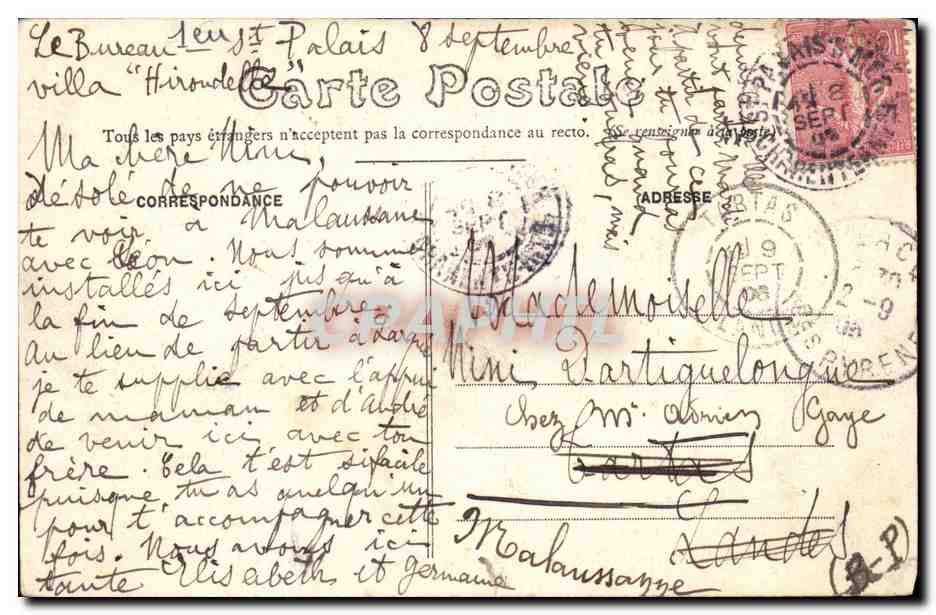 Le Bureau 1er St Palais 8 septembre
villa "Hirondelle"
Carte Postale
Tous les pays étrangers n'acceptent pas la correspondance au recto. (Se renseigner à la poste)
CORRESPONDANCE
ADRESSE
Ma chère Nini,
désolé de ne pouvoir
te voir à Malaussane
avec Léon. Nous sommes
installés ici jusqu'à
la fin de septembre,
au lieu de partir à
je te supplie avec l'appui
de maman et d'André
de venir ici avec ton
frère. Cela t'est si facile
puisque tu as quelqu'un
pour t'accompagner cette
fois. Nous avons ici
tante Elisabeth et Germaine
depuis
sont partis
à partir de ce
jour tu pourras
venir quand
tu
Mademoiselle
Nini Dartiguelongue
chez Mr Adrien Gaye
Tartas
Landes
Malaussanne
(B-P)
ST PALAIS-S-MER
8
SEPT
TARTAS
9
SEPT
06
LANDES
9
PYRENE
CARAPHIL